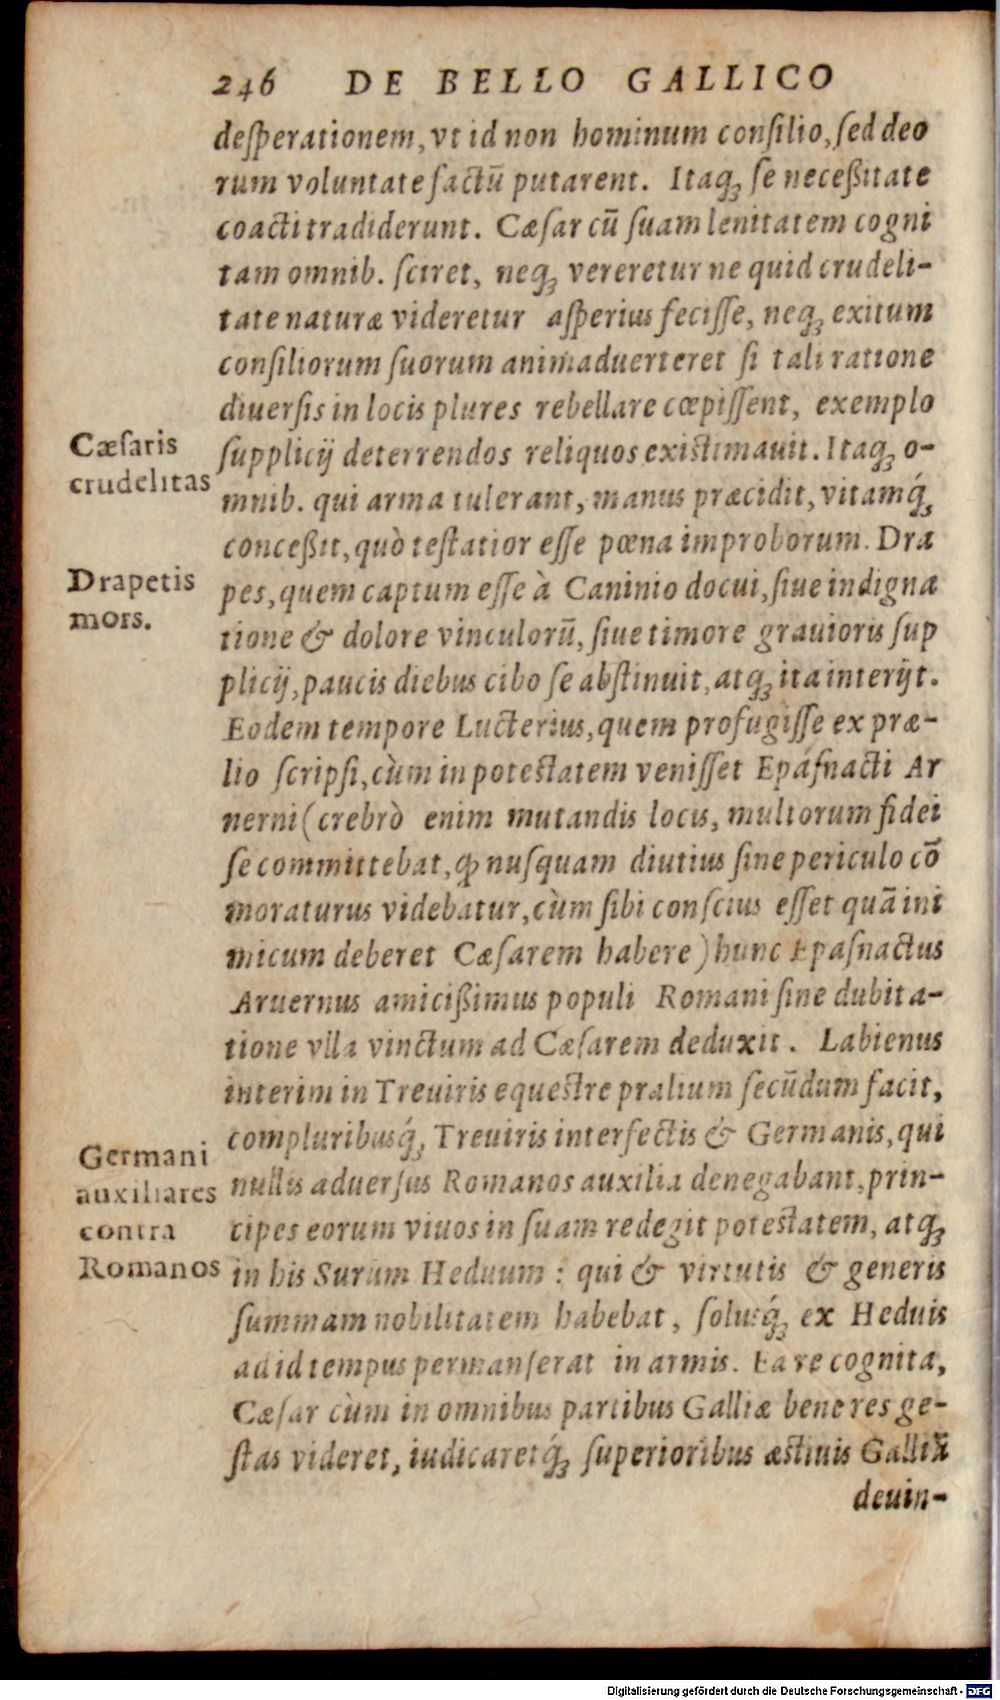 246 DE BELLO GALLICO
deſperationem, vt id non hominum conſilio, ſed deo
rum voluntate factũ putarent. Itaqꝫ ſe neceßitate
coacti tradiderunt. Cæſar cũ ſuam lenitatem cogni
tam omnib. ſciret, neqꝫ vereretur ne quid crudeli-
tate naturæ videretur aſperius feciſſe, neqꝫ exitum
conſiliorum ſuorum animaduerteret ſi tali ratione
diuerſis in locis plures rebellare cœpiſſent, exemplo
Cæſaris
crudelitas
ſupplicij deterrendos reliquos existimauit. Itaqꝫ o-
mnib. qui arma tulerant, manus præcidit, vitamq́ꝫ
conceßit, quò teſtatior eſſe pœna improborum. Dra
Drapetis
mors.
pes, quem captum eſſe à Caninio docui, ſiue indigna
tione & dolore vinculorũ, ſiue timore grauioris ſup
plicij, paucis diebus cibo ſe abſtinuit, atqꝫ ita interijt.
Eodem tempore Lucterius, quem profugiſſe ex præ-
lio ſcripſi, cùm in potestatem veniſſet Epáſnacti Ar
nerni (crebrò enim mutandis locis, multorum fidei
ſe committebat, ꝙ nuſquam diutius ſine periculo cō
moraturus videbatur, cùm ſibi conſcius eſſet quã ini
micum deberet Cæſarem habere) hunc Epaſnactus
Aruernus amicißimus populi Romani ſine dubita-
tione vlla vinctum ad Cæſarem deduxit. Labienus
interim in Treuiris equestre prælium ſecũdum facit,
compluribusq́ꝫ Treuiris interfectis & Germanis, qui
Germani
auxiliares
contra
Romanos
nullis aduerſus Romanos auxilia denegabant, prin-
cipes eorum viuos in ſuam redegit potestatem, atqꝫ
in his Surum Heduum : qui & virtutis & generis
ſummam nobilitatem habebat, ſolusq́ꝫ ex Heduis
ad id tempus permanſerat in armis. Ea re cognita,
Cæſar cùm in omnibus partibus Galliæ bene res ge-
ſtas videret, iudicaretq́ꝫ ſuperioribus æstiuis Galliã
deuin-
Digitalisierung gefördert durch die Deutsche Forschungsgemeinschaft - DFG